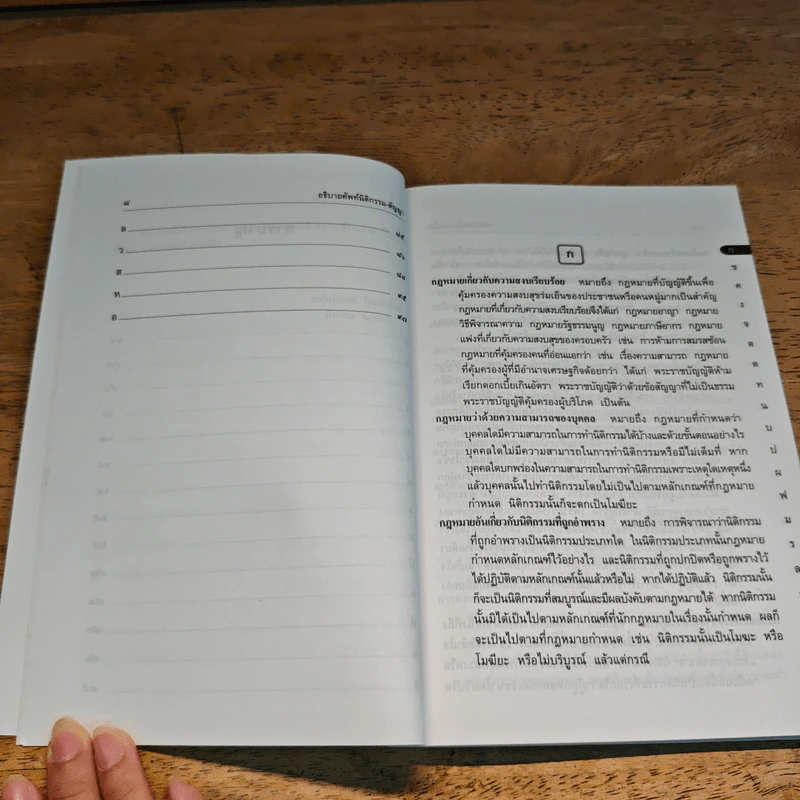 ๘ อธิบายศัพท์นิติกรรม-สัญญา
ล ๘๕
ว ๘๖
ส ๘๘
ห ๙๕
อ ๙๗
ก
กฎหมายเกี่ยวกับความสงบเรียบร้อย หมายถึง กฎหมายที่บัญญัติขึ้นเพื่อ
คุ้มครองความสงบสุขร่มเย็นของประชาชนหรือคนหมู่มากเป็นสำคัญ
กฎหมายที่เกี่ยวกับความสงบเรียบร้อยจึงได้แก่ กฎหมายอาญา กฎหมาย
วิธีพิจารณาความ กฎหมายรัฐธรรมนูญ กฎหมายภาษีอากร กฎหมาย
แพ่งที่เกี่ยวกับความสงบสุขของครอบครัว เช่น การห้ามการสมรสซ้อน
กฎหมายที่คุ้มครองคนที่อ่อนแอกว่า เช่น เรื่องความสามารถ กฎหมาย
ที่คุ้มครองผู้ที่มีอำนาจเศรษฐกิจด้อยกว่า ได้แก่ พระราชบัญญัติห้าม
เรียกดอกเบี้ยเกินอัตรา พระราชบัญญัติว่าด้วยข้อสัญญาที่ไม่เป็นธรรม
พระราชบัญญัติคุ้มครองผู้บริโภค เป็นต้น
กฎหมายว่าด้วยความสามารถของบุคคล หมายถึง กฎหมายที่กำหนดว่า
บุคคลใดมีความสามารถในการทำนิติกรรมได้บ้างและด้วยขั้นตอนอย่างไร
บุคคลใดไม่มีความสามารถในการทำนิติกรรมหรือมีไม่เต็มที่ หาก
บุคคลใดบกพร่องในความสามารถในการทำนิติกรรมเพราะเหตุใดเหตุหนึ่ง
แล้วบุคคลนั้นไปทำนิติกรรมโดยไม่เป็นไปตามหลักเกณฑ์ที่กฎหมาย
กำหนด นิติกรรมนั้นก็จะตกเป็นโมฆียะ
กฎหมายอันเกี่ยวกับนิติกรรมที่ถูกอำพราง หมายถึง การพิจารณาว่านิติกรรม
ที่ถูกอำพรางเป็นนิติกรรมประเภทใด ในนิติกรรมประเภทนั้นกฎหมาย
กำหนดหลักเกณฑ์ไว้อย่างไร และนิติกรรมที่ถูกปกปิดหรือถูกพรางไว้
ได้ปฏิบัติตามหลักเกณฑ์นั้นแล้วหรือไม่ หากได้ปฏิบัติแล้ว นิติกรรมนั้น
ก็จะเป็นนิติกรรมที่สมบูรณ์และมีผลบังคับตามกฎหมายได้ หากนิติกรรม
นั้นมิได้เป็นไปตามหลักเกณฑ์ที่นักกฎหมายในเรื่องนั้นกำหนด ผลก็
จะเป็นไปตามที่กฎหมายกำหนด เช่น นิติกรรมนั้นเป็นโมฆะ หรือ
โมฆียะ หรือไม่บริบูรณ์ แล้วแต่กรณี
ก
ข
ค
ง
จ
ด
ต
ท
น
บ
ป
ผ
ฟ
ม
ร
ล